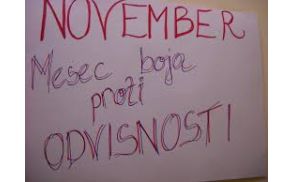 NOVEMBER
Mesec boja
proti
ODVISNOSTI